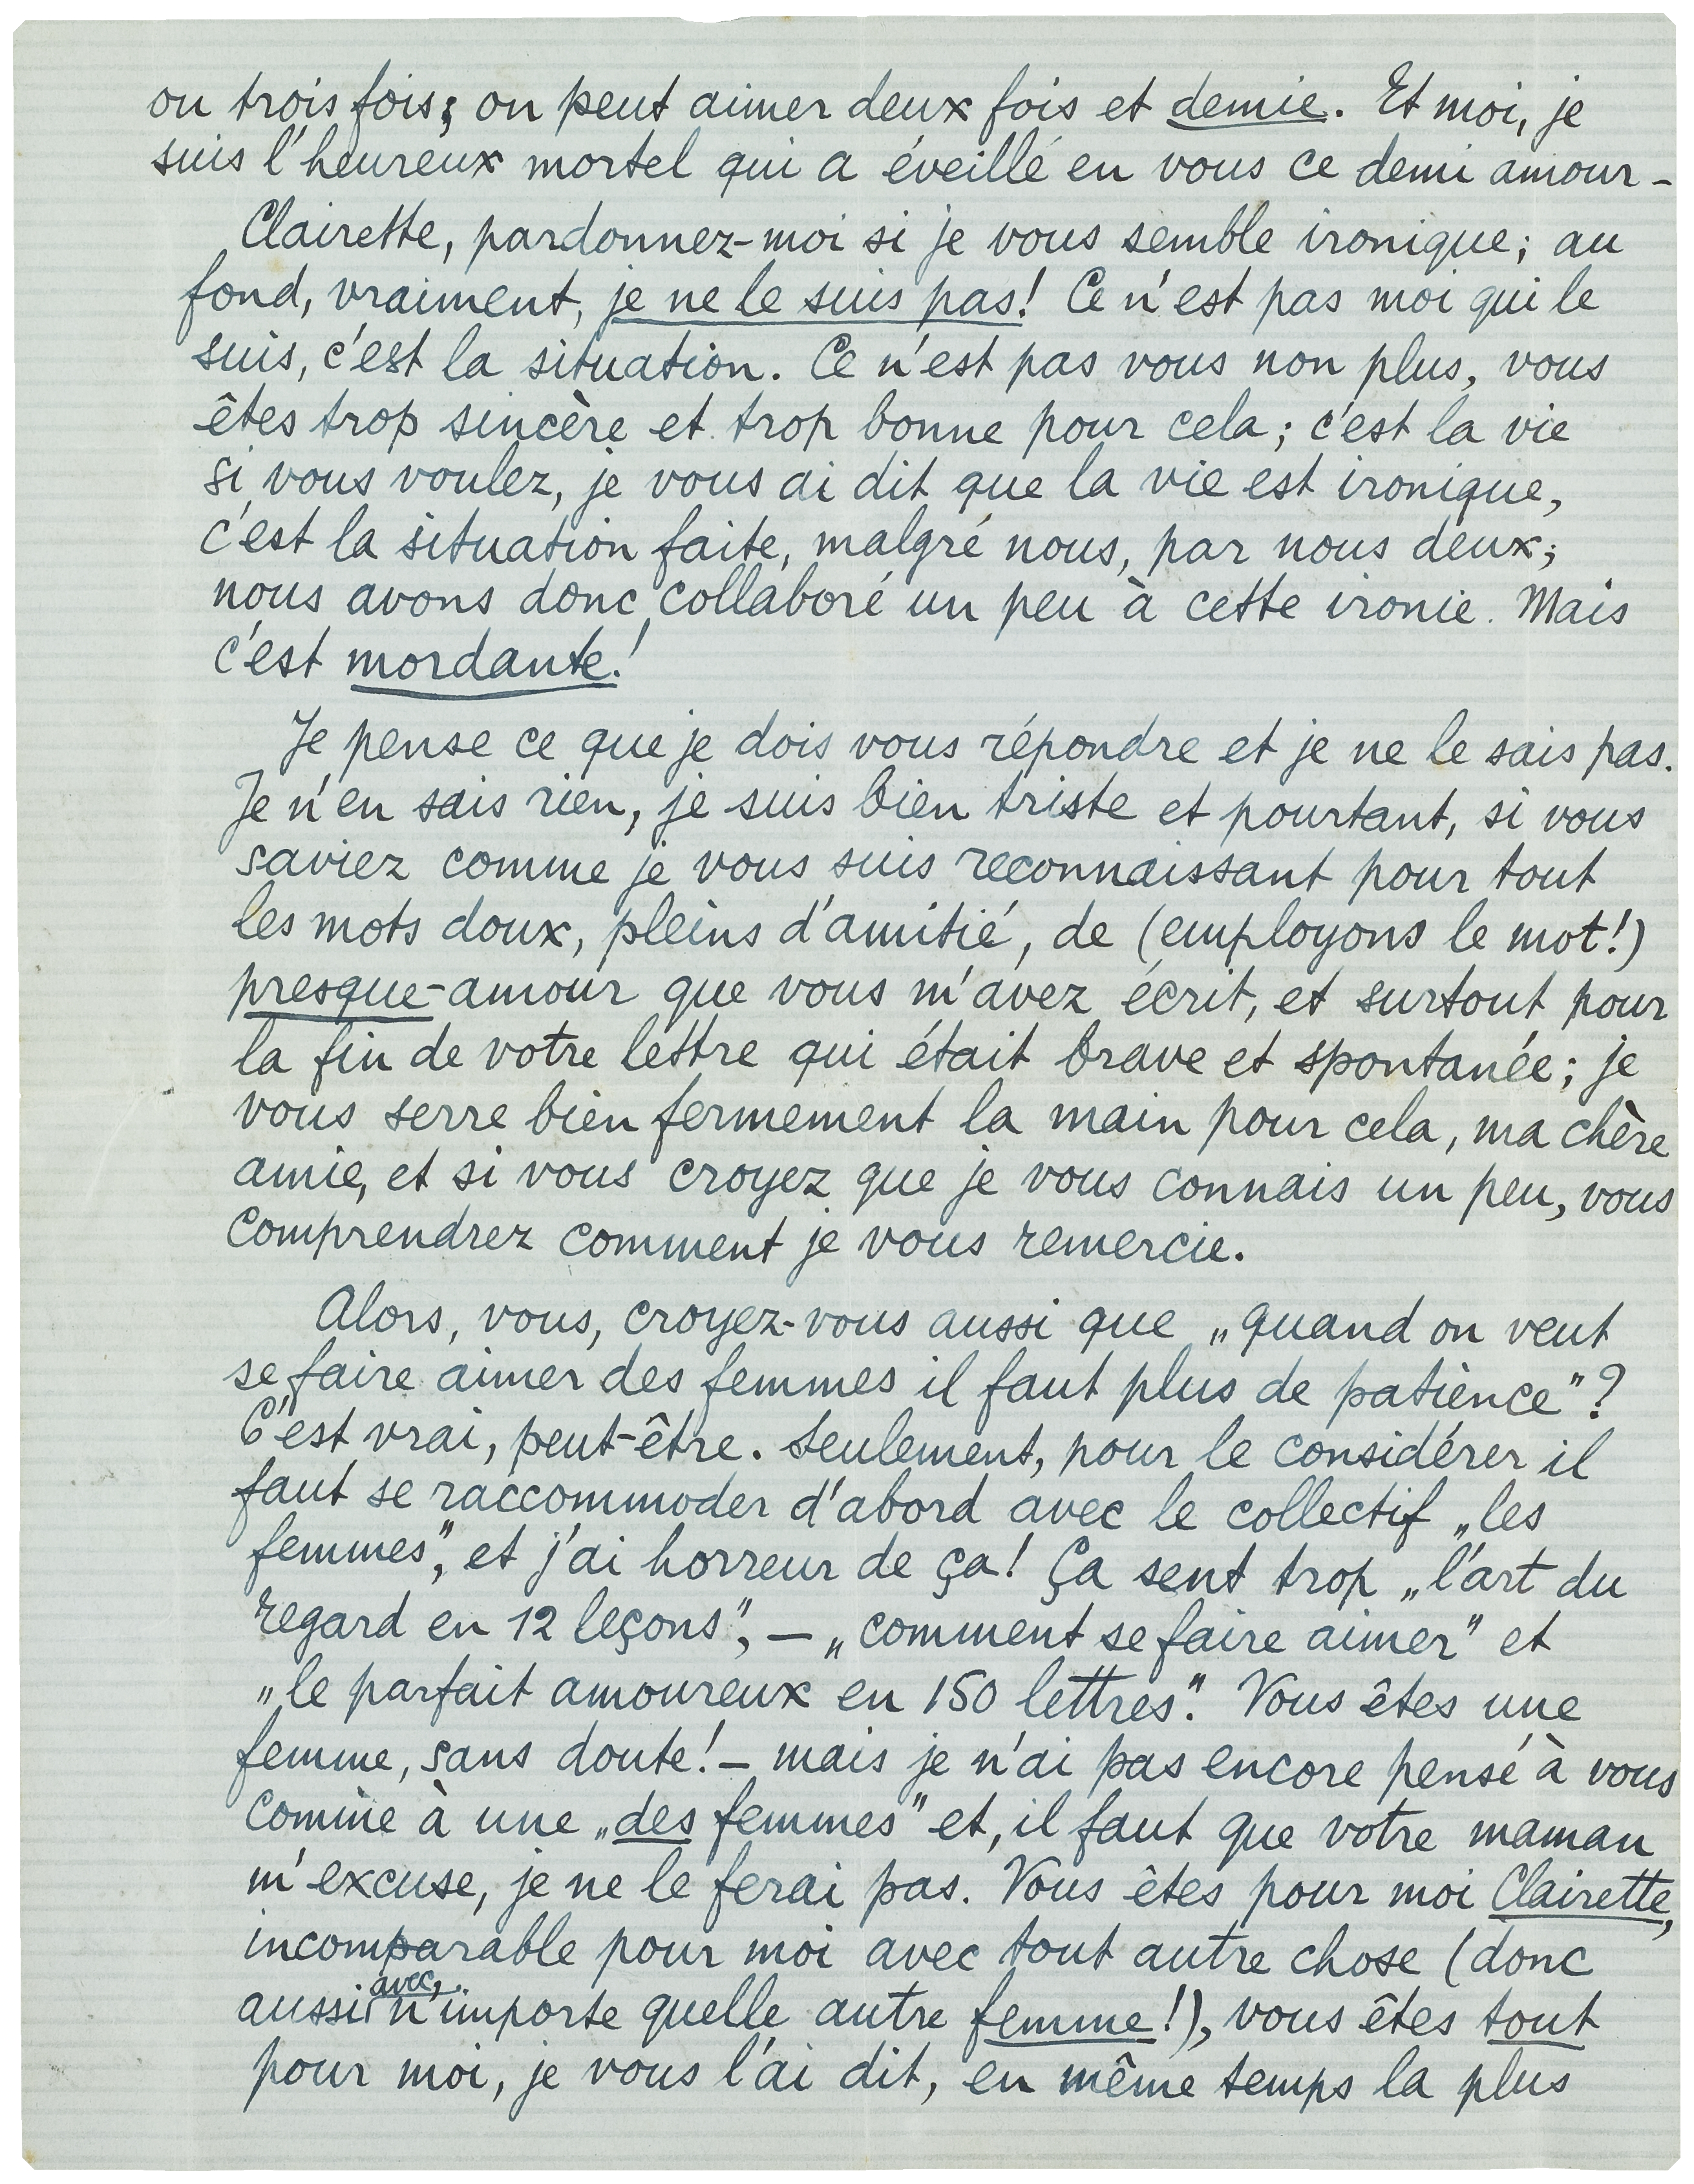 ou trois fois; on peut aimer deux fois et demie. Et moi, je
suis l'heureux mortel qui a éveillé en vous ce demi amour -
Clairette, pardonnez-moi si je vous semble ironique; au
fond, vraiment, je ne le suis pas! Ce n'est pas moi qui le
suis, c'est la situation. Ce n'est pas vous non plus, vous
êtes trop sincère et trop bonne pour cela; c'est la vie
si vous voulez, je vous ai dit que la vie est ironique,
c'est la situation faite, malgré nous, par nous deux;
nous avons donc collaboré un peu à cette ironie. Mais
c'est mordante!
Je pense ce que je dois vous répondre et je ne le sais pas.
Je n'en sais rien, je suis bien triste et pourtant, si vous
saviez comme je vous suis reconnaissant pour tout
les mots doux, pleins d'amitié, de (employons le mot!)
presque-amour que vous m'avez écrit, et surtout pour
la fin de votre lettre qui était brave et spontanée; je
vous serre bien fermement la main pour cela, ma chère
amie, et si vous croyez que je vous connais un peu, vous
comprendrez comment je vous remercie.
Alors, vous, croyez-vous aussi que „quand on veut
se faire aimer des femmes il faut plus de patience"?
C'est vrai, peut-être. Seulement, pour le considérer il
faut se raccommoder d'abord avec le collectif „les
femmes", et j'ai horreur de ça! Ça sent trop „l'art du
regard en 12 leçons", — „comment se faire aimer" et
„le parfait amoureux en 150 lettres". Vous êtes une
femme, sans doute! — mais je n'ai pas encore pensé à vous
comme à une „des femmes" et, il faut que votre maman
m'excuse, je ne le ferai pas. Vous êtes pour moi Clairette,
incomparable pour moi avec tout autre chose (donc
aussi avec n'importe quelle autre femme!), vous êtes tout
pour moi, je vous l'ai dit, en même temps la plus